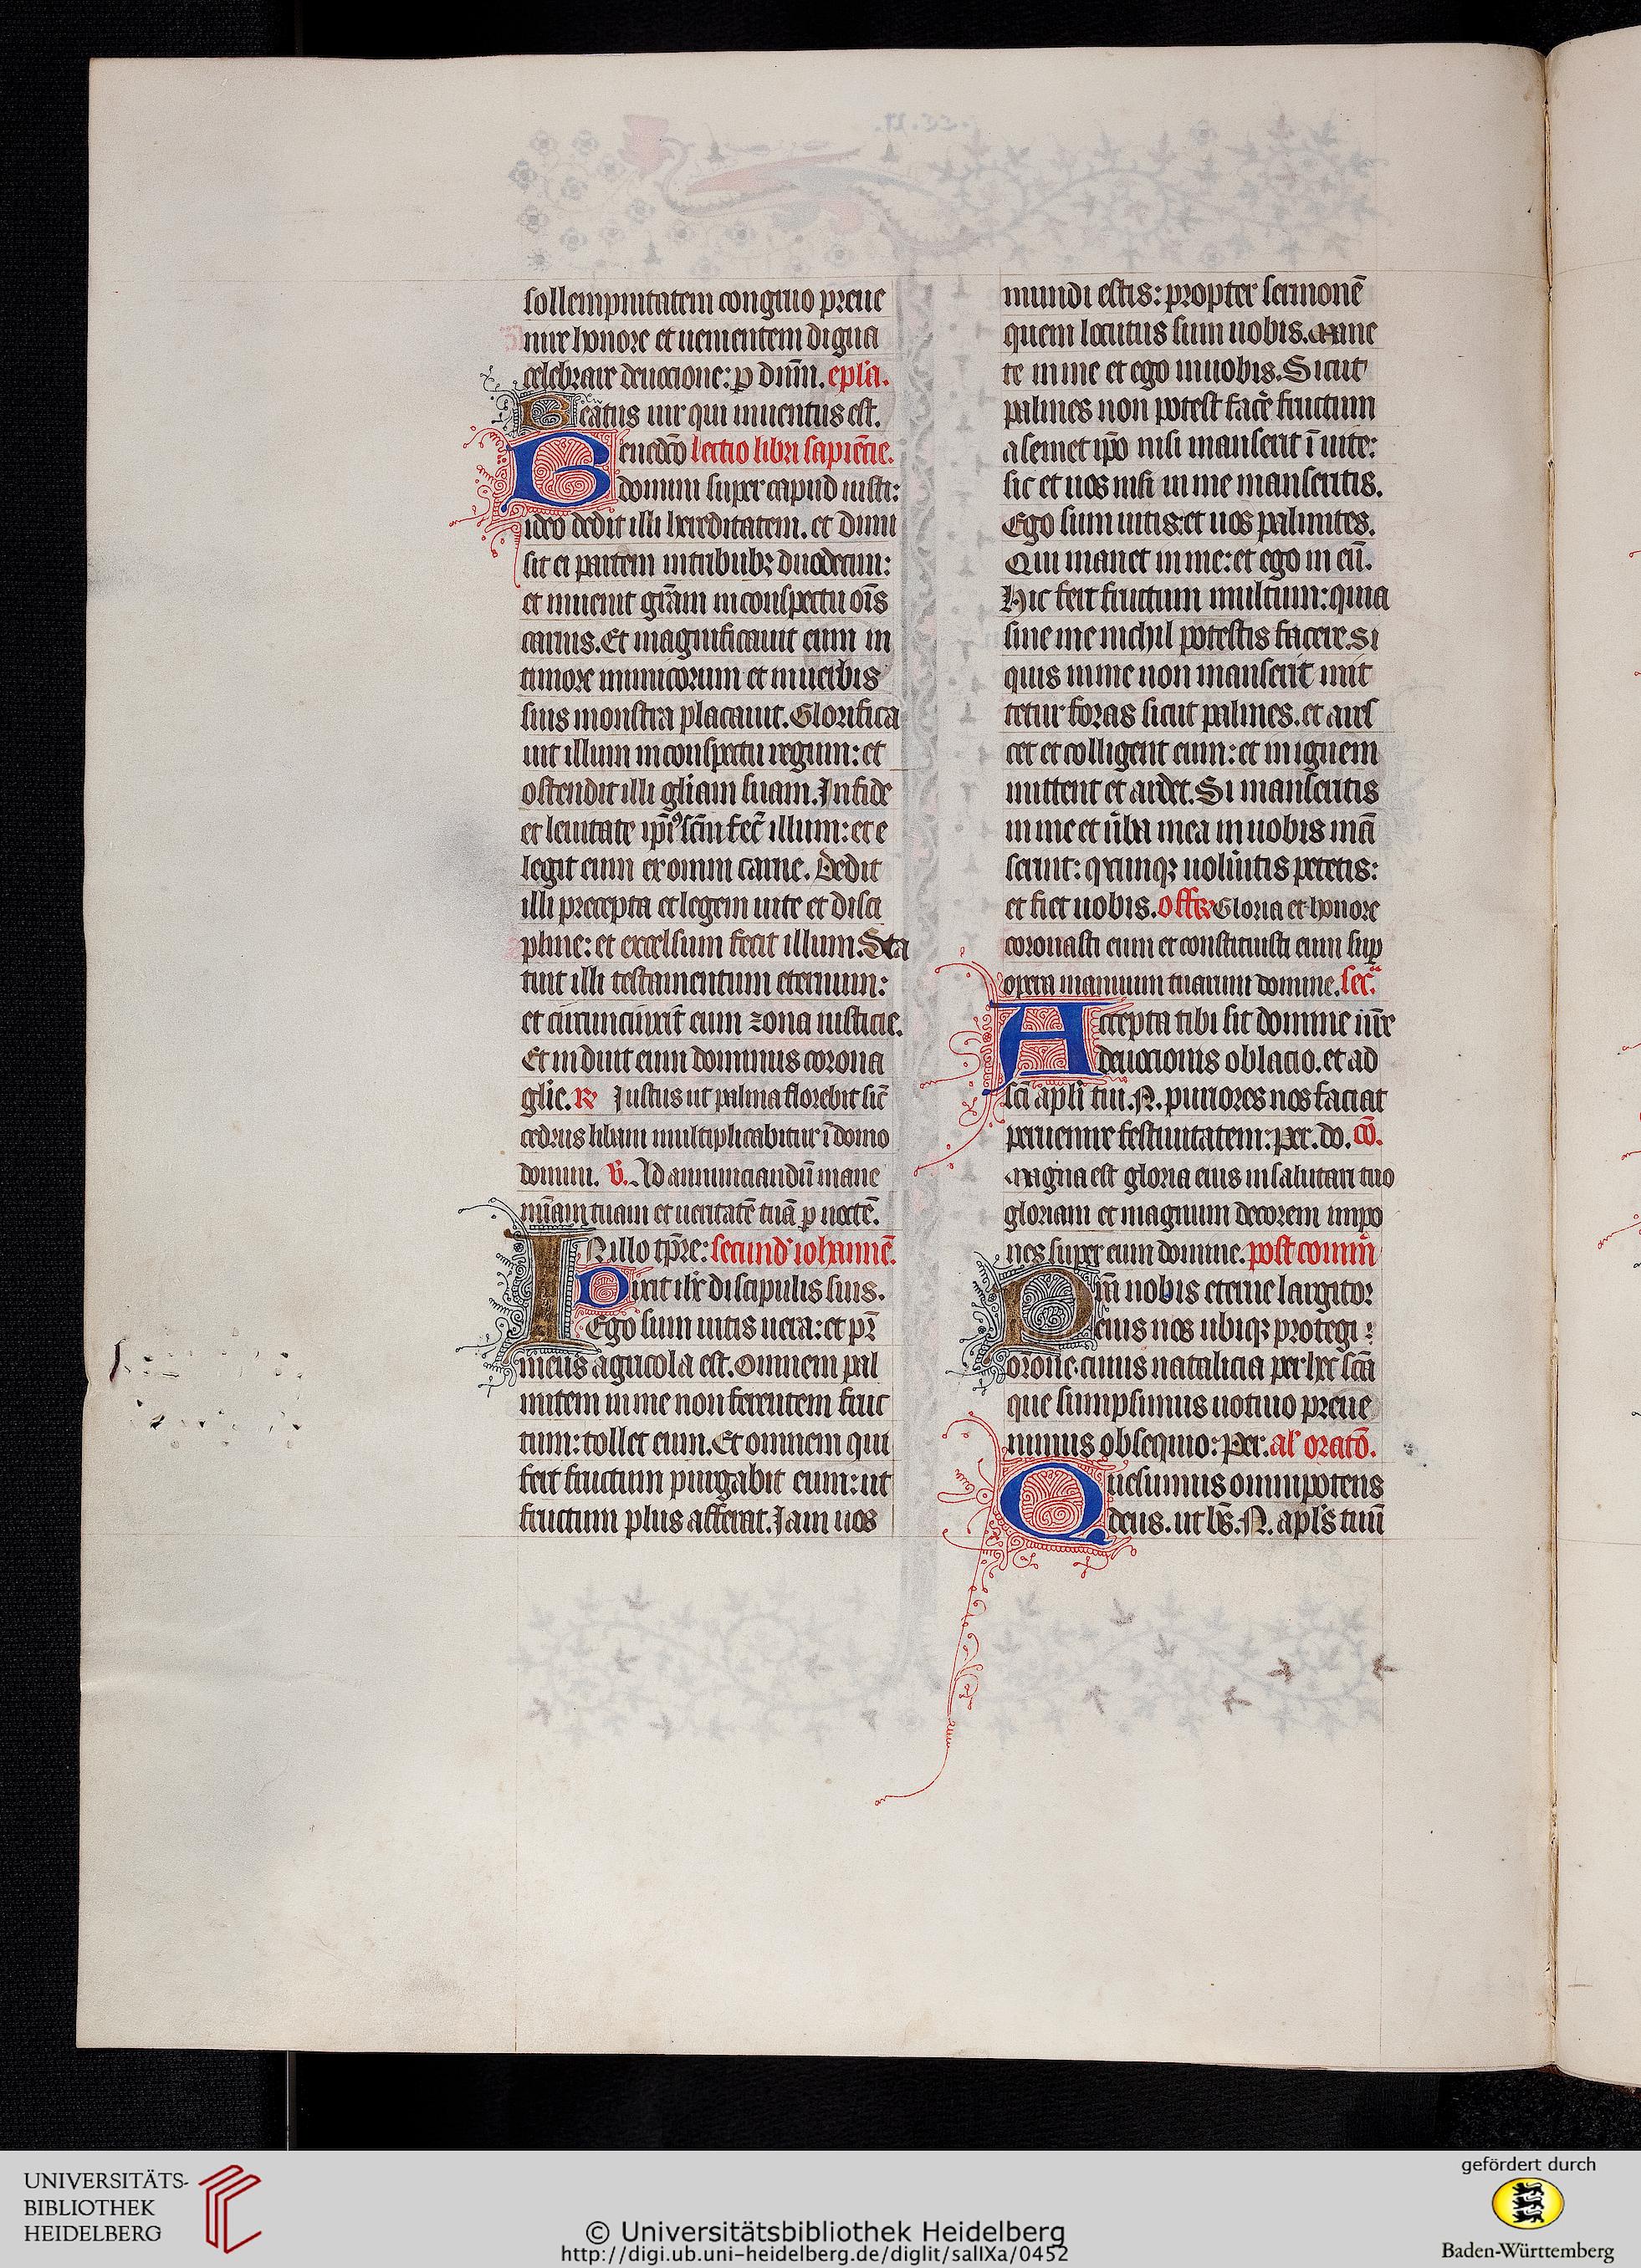 sollempnitatem congruo preue
nire honore et uenientem digna
celebrare deuocione: p dnm. epla.
Beatus uir qui inuentus est.
Benedco lectio libri sapiencie.
domini super capud iusti:
ideo dedit illi hereditatem. et diui
sit ei partem in tribubz duodecim:
et inuenit gram in conspectu ois
carnis. Et magnificauit eum in
timore inimicorum et in uerbis
suis monstra placauit. Glorifica
uit illum in conspectu regum: et
ostendit illi gliam suam. In fide
et lenitate ipi9 scm fec illum: et e
legit eum ex omni carne. Dedit
illi precepta et legem uite et disci
pline: et excelsum fecit illum. Sta
tuit illi testamentum eternum:
et circumcinxit eum zona iusticie.
Et induit eum dominus corona
glie. R Justus ut palma florebit sic
cedrus libani multiplicabitur i domo
domini. V. Ad annunciandu mane
miam tuam et ueritate tua p nocte.
IN illo tpre: secund' iohanne.
Dixit ihc discipulis suis.
Ego sum uitis uera: et pr
meus agricola est. Omnem pal
mitem in me non ferentem fruc
tum: tollet eum. Et omnem qui
fert fructum purgabit eum: ut
fructum plus afferat. Jam uos
mundi estis: propter sermone
quem locutus sum uobis. Mane
te in me et ego in uobis. Sicut
palmes non potest face fructum
a semet ipo nisi manserit i uite:
sic et uos nisi in me manseritis.
Ego sum uitis: et uos palmites.
Qui manet in me: et ego in eu.
Hic fert fructum multum: quia
sine me nichil potestis facere. Si
quis in me non manserit mit
tetur foras sicut palmes. et ares
cet et colligent eum: et in ignem
mittent et ardet. Si manseritis
in me et uba mea in uobis man
serint: qcumqz uolueritis petetis:
et fiet uobis. Offr Gloria et honore
coronasti eum et constituisti eum sup
opera manuum tuarum domine. sec.
Accepta tibi sit domine nre
deuocionis oblacio. et ad
sci apli tui. N. puriores nos faciat
peruenire festiuitatem: Per. do. co.
Magna est gloria eius in salutari tuo
gloriam et magnum decorem impo
nes super eum domine. post comm
Prm nobis eterne largitor
eius nos ubiqz protegi
orone. cuius natalicia per hec sca
que sumpsimus uotiuo preue
nimus obsequio: Per. al' orato.
Quesumus omnipotens
deus. ut bs. N. apls tuu
UNIVERSITÄTS-
BIBLIOTHEK
HEIDELBERG
© Universitätsbibliothek Heidelberg
http://digi.ub.uni-heidelberg.de/diglit/salIXa/0452
gefördert durch
Baden-Württemberg